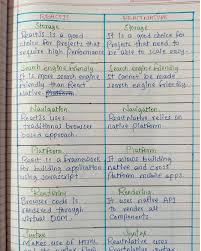 REACTJS
REACTNATIVE
Storage
ReactJs is a good
choice for Projects that
require high Performance
Storage
It is a good choice for
Projects that need to
be able to scale easy.
Search engine friendly
It is more search engine
friendly than React
Native.
Search engine friendly
It cannot be made
search engine friendly.
Navigation
ReactJs uses
traditional browser
based approach.
Navigation
ReactNative relies on
native platform
Platform
React is a framework
for building application
using Javascript
Platform
It allows building
native and cross
platform mobile apps.
Renderer
Browser code is
rendered through
Virtual DOM.
Rendering
It uses native API
to render all
Components
Syntax
Makes use of HTML
Syntax
ReactNative uses